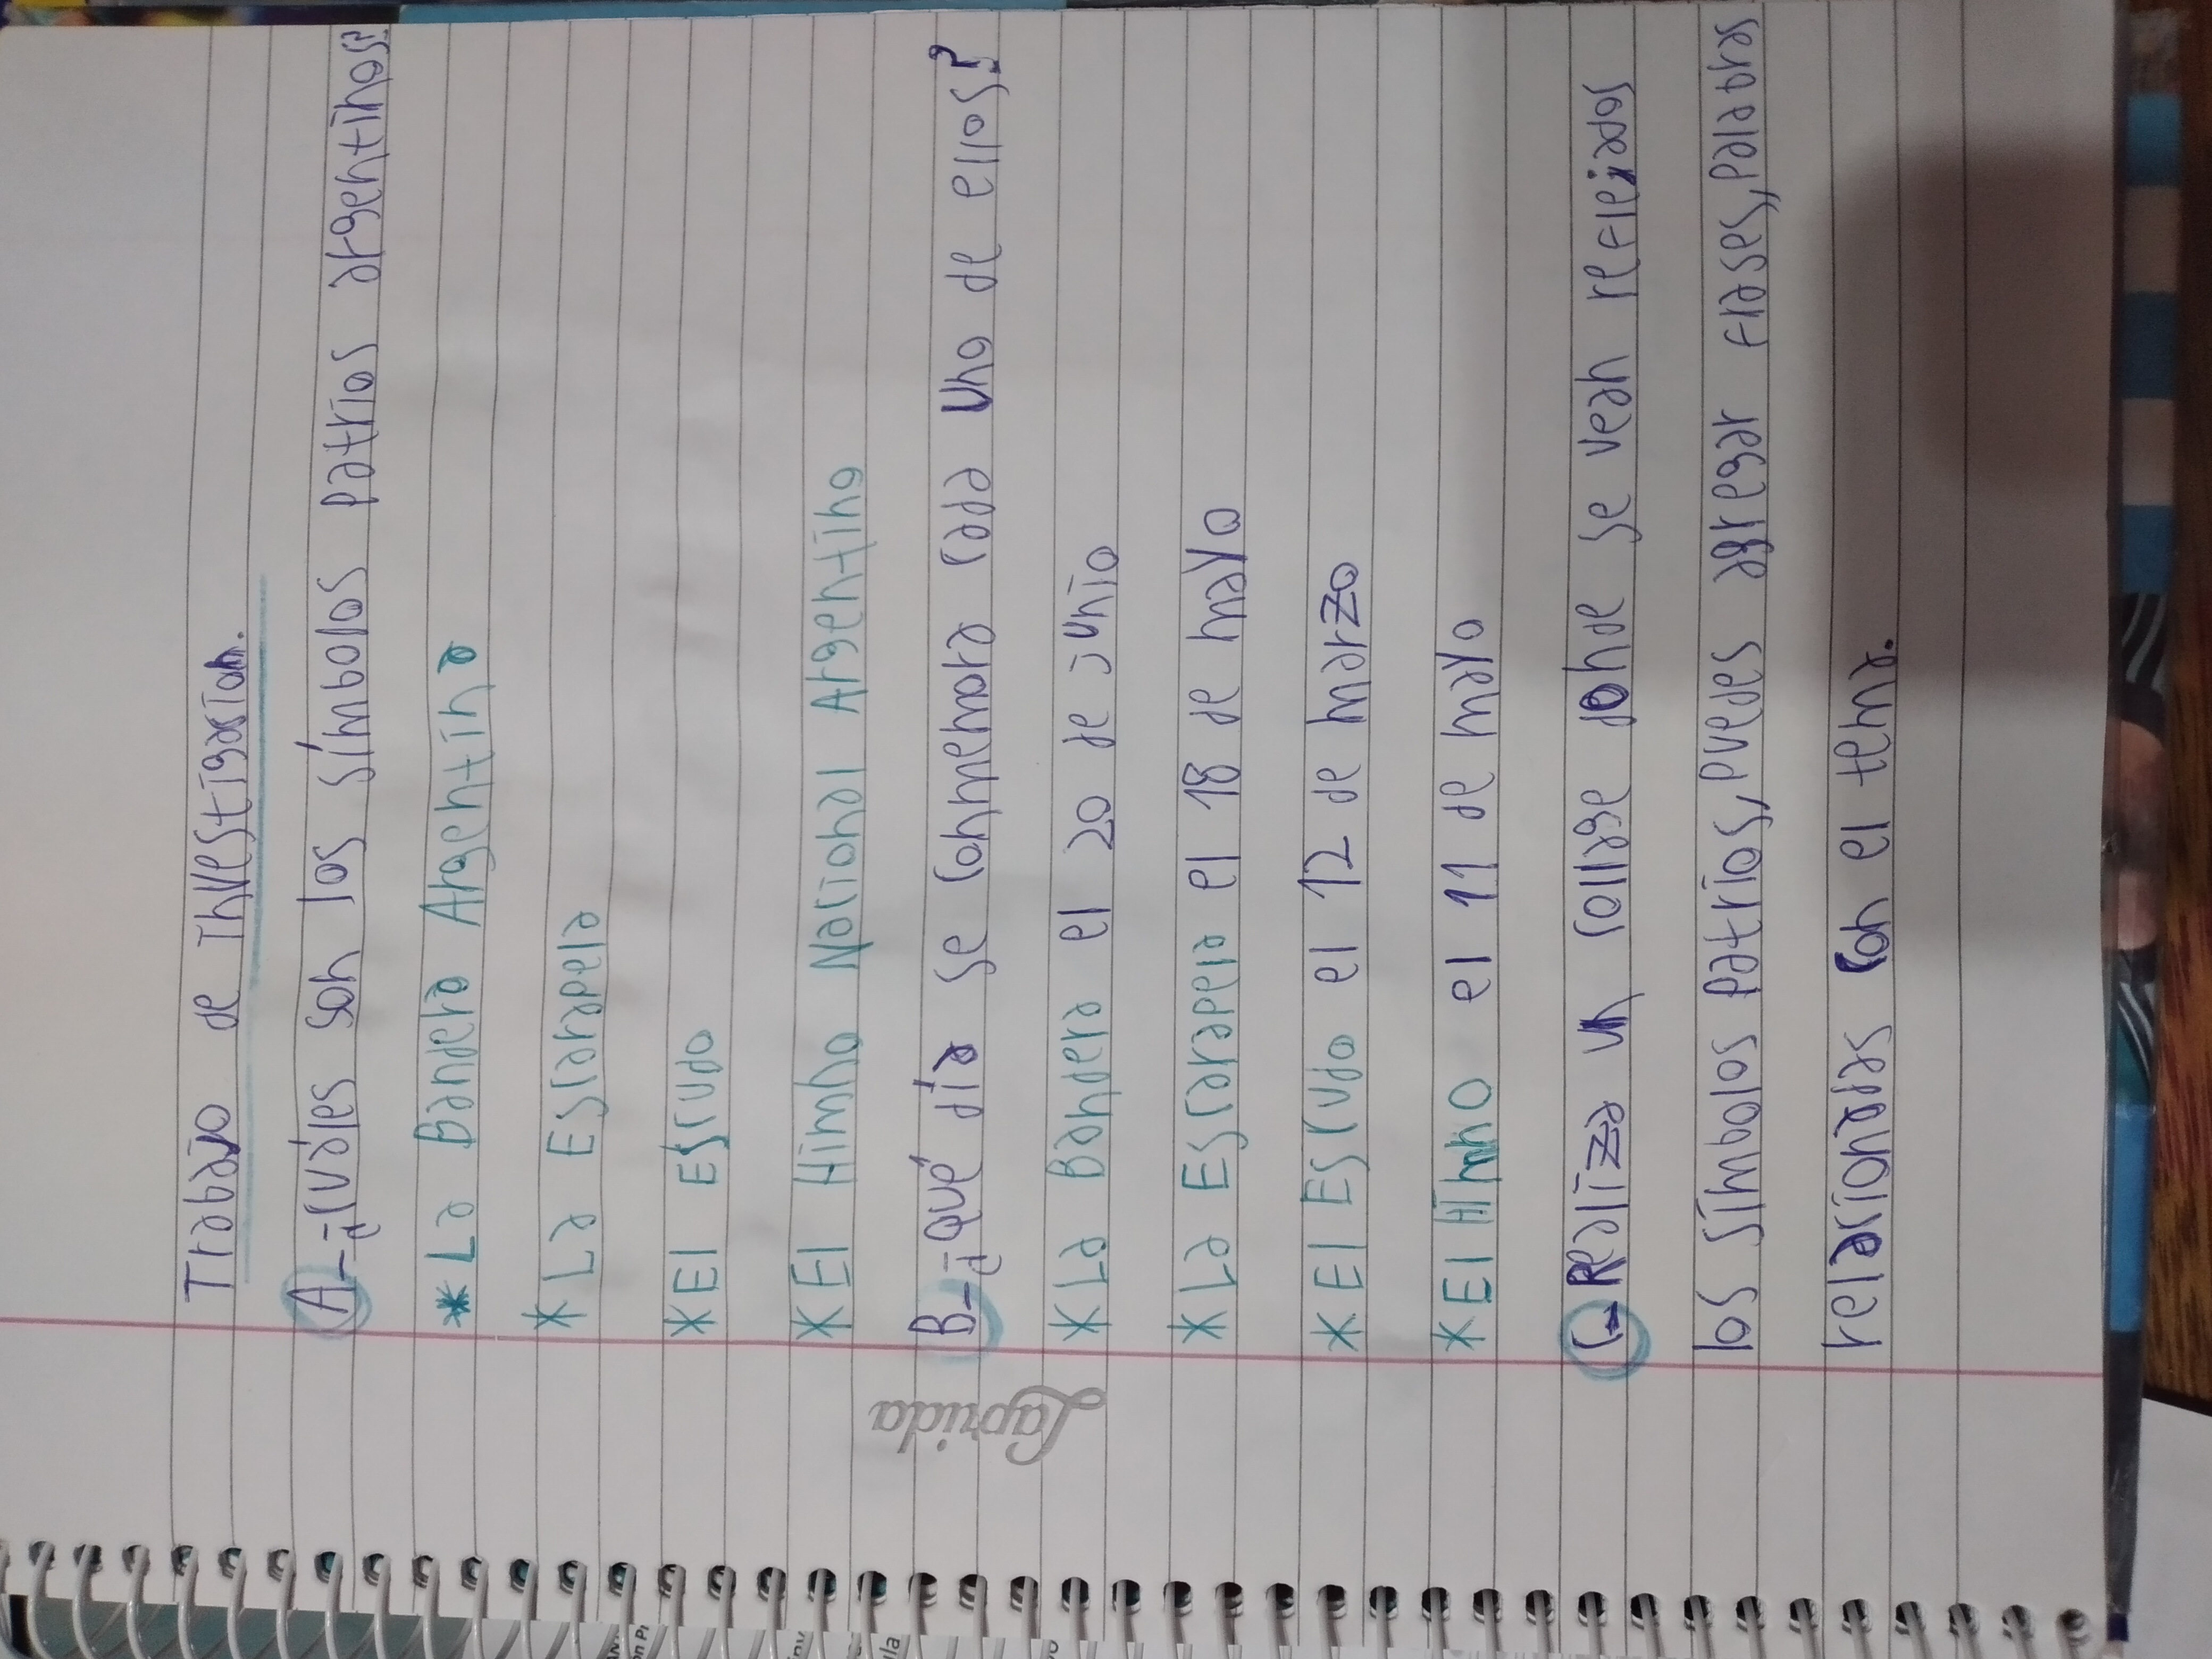 Trabajo de Investigasion.
A-¿Cuáles son los símbolos patrios argentinos?
* La Bandera Argentina
* La Escarapela
* El Escudo
* El Himno Nacional Argentino
B-¿Qué día se conmemora cada uno de ellos?
* La Bandera el 20 de junio
* La Escarapela el 18 de mayo
* El Escudo el 12 de marzo
* El Himno el 11 de mayo
C-Realiza un collage donde se vean reflejados
los símbolos patrios, puedes agregar frases, palabras
relasionadas con el tema.
Laprida